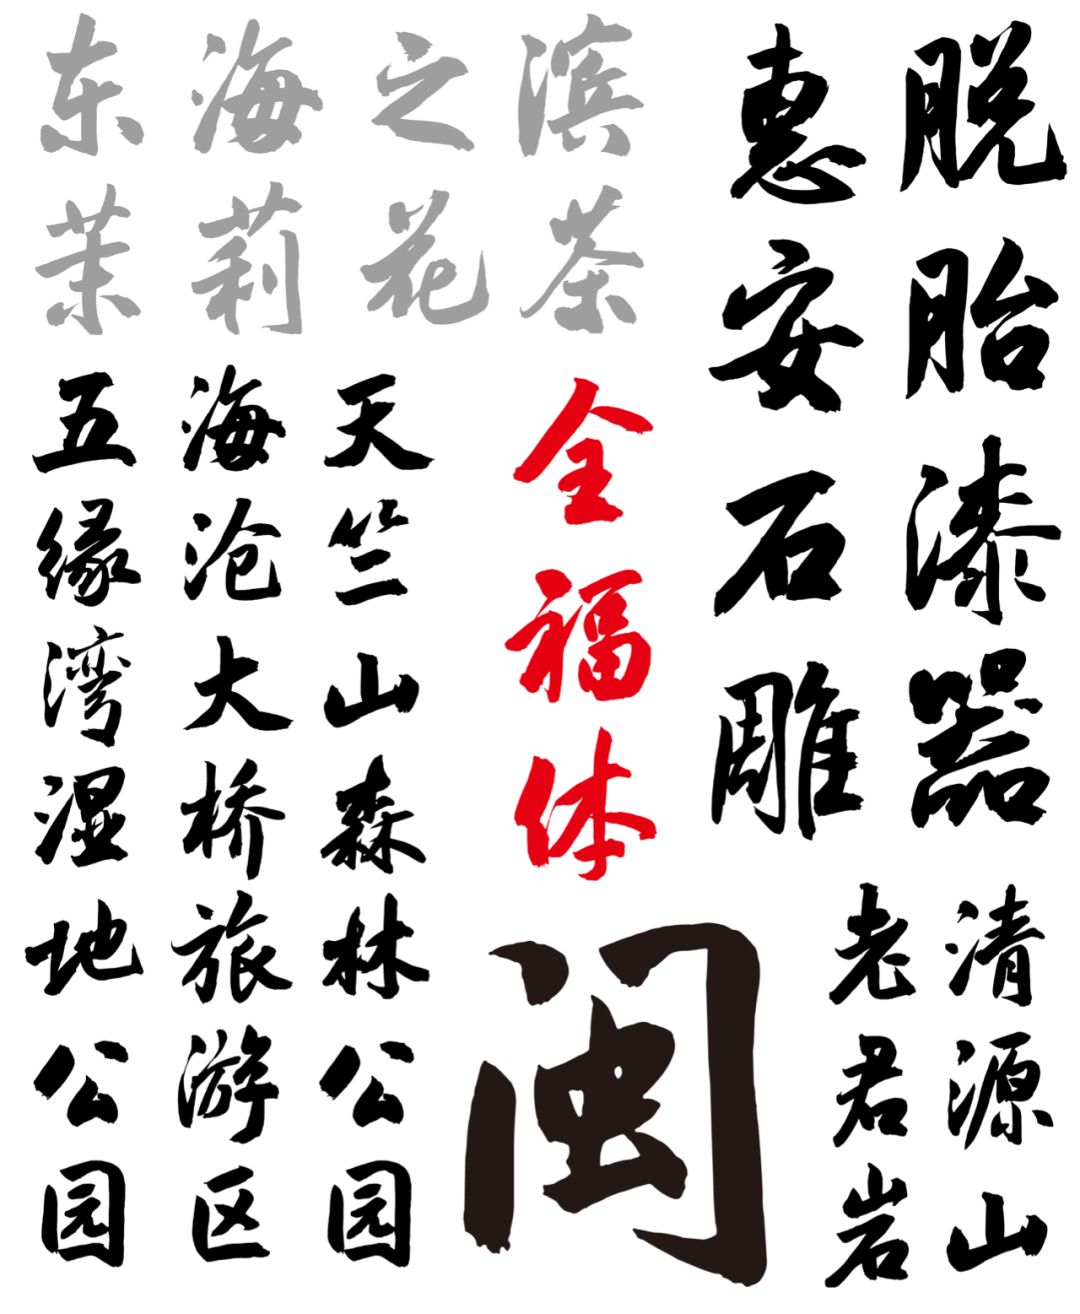 东海之滨
茉莉花茶
脱胎漆器
惠安石雕
全福体
天竺山森林公园
海沧大桥旅游区
五缘湾湿地公园
闽
清源山
老君岩